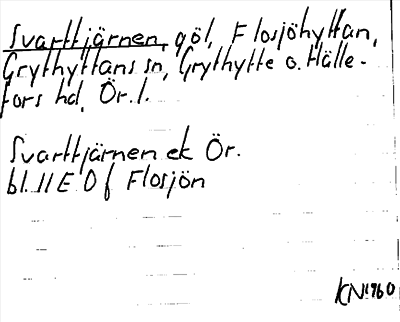 Svarttjärnen, göl, Flosjöhyttan,
Grythyttans sn, Grythytte o. Hälle-
fors hd, Ör. l.
Svarttjärnen ek Ör.
bl. 11 E 0 f Flosjön
KN 1960